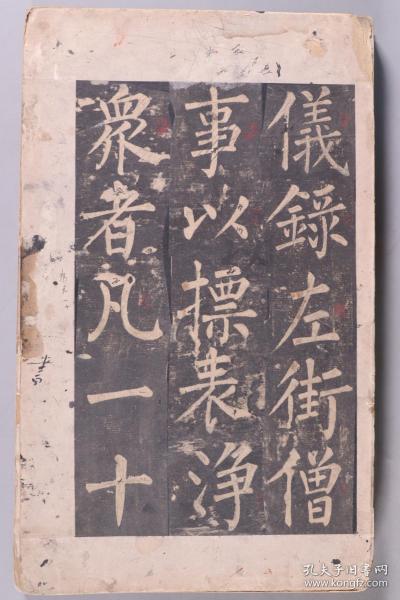 儀錄左街僧
事以摽表淨
衆者凡一十
孔夫子旧书网
www.kongfz.com